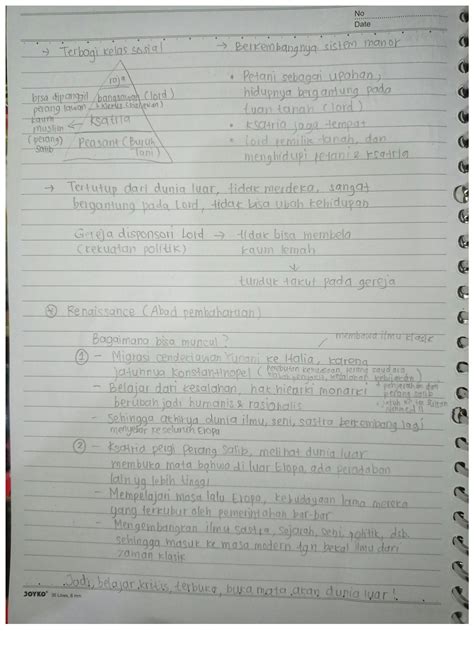 No
Date
→ Terbagi kelas sosial
→ Berkembangnya sistem manor
raja
bangsawan (lord)
ksatria
Peasant (Buruh Tani)
bisa dipanggil
perang lawan
kaum
muslim
(perang)
salib
• Petani sebagai upahan,
hidupnya bergantung pada
tuan tanah (lord)
• ksatria jaga tempat
• Lord pemilik tanah, dan
menghidupi petani & ksatria
→ Tertutup dari dunia luar, tidak merdeka, sangat
bergantung pada Lord, tidak bisa ubah kehidupan
Gereja disponsori Lord → tidak bisa membela
(kekuatan politik) kaum lemah
↓
tunduk takut pada gereja
Renaissance (Abad pembaharuan)
Bagaimana bisa muncul?
membawa ilmu klasik
① - Migrasi cendekiawan Yunani ke Italia, karena
jatuhnya Konstantinopel
- Belajar dari kesalahan, hak hierarki monarki
berubah jadi humanis & rasionalis
+ penyerahan dari
perang salib
- Sehingga akhirya dunia ilmu, seni, sastra berkembang lagi
menyebar ke seluruh Eropa
② - Ksatria pergi perang salib, melihat dunia luar
membuka mata bahwa di luar Eropa, ada peradaban
lain yg lebih tinggi
- Mempelajari masa lalu Eropa, kebudayaan lama mereka
yang terkubur oleh pemerintahan bar-bar
- Mengembangkan ilmu sastra, sejarah, seni, politik, dsb
sehingga masuk ke masa modern dgn bekal ilmu dari
zaman klasik
Jadi, belajar kritis, terbuka, buka mata akan dunia luar!
JOYKO 30 Lines, 8 mm